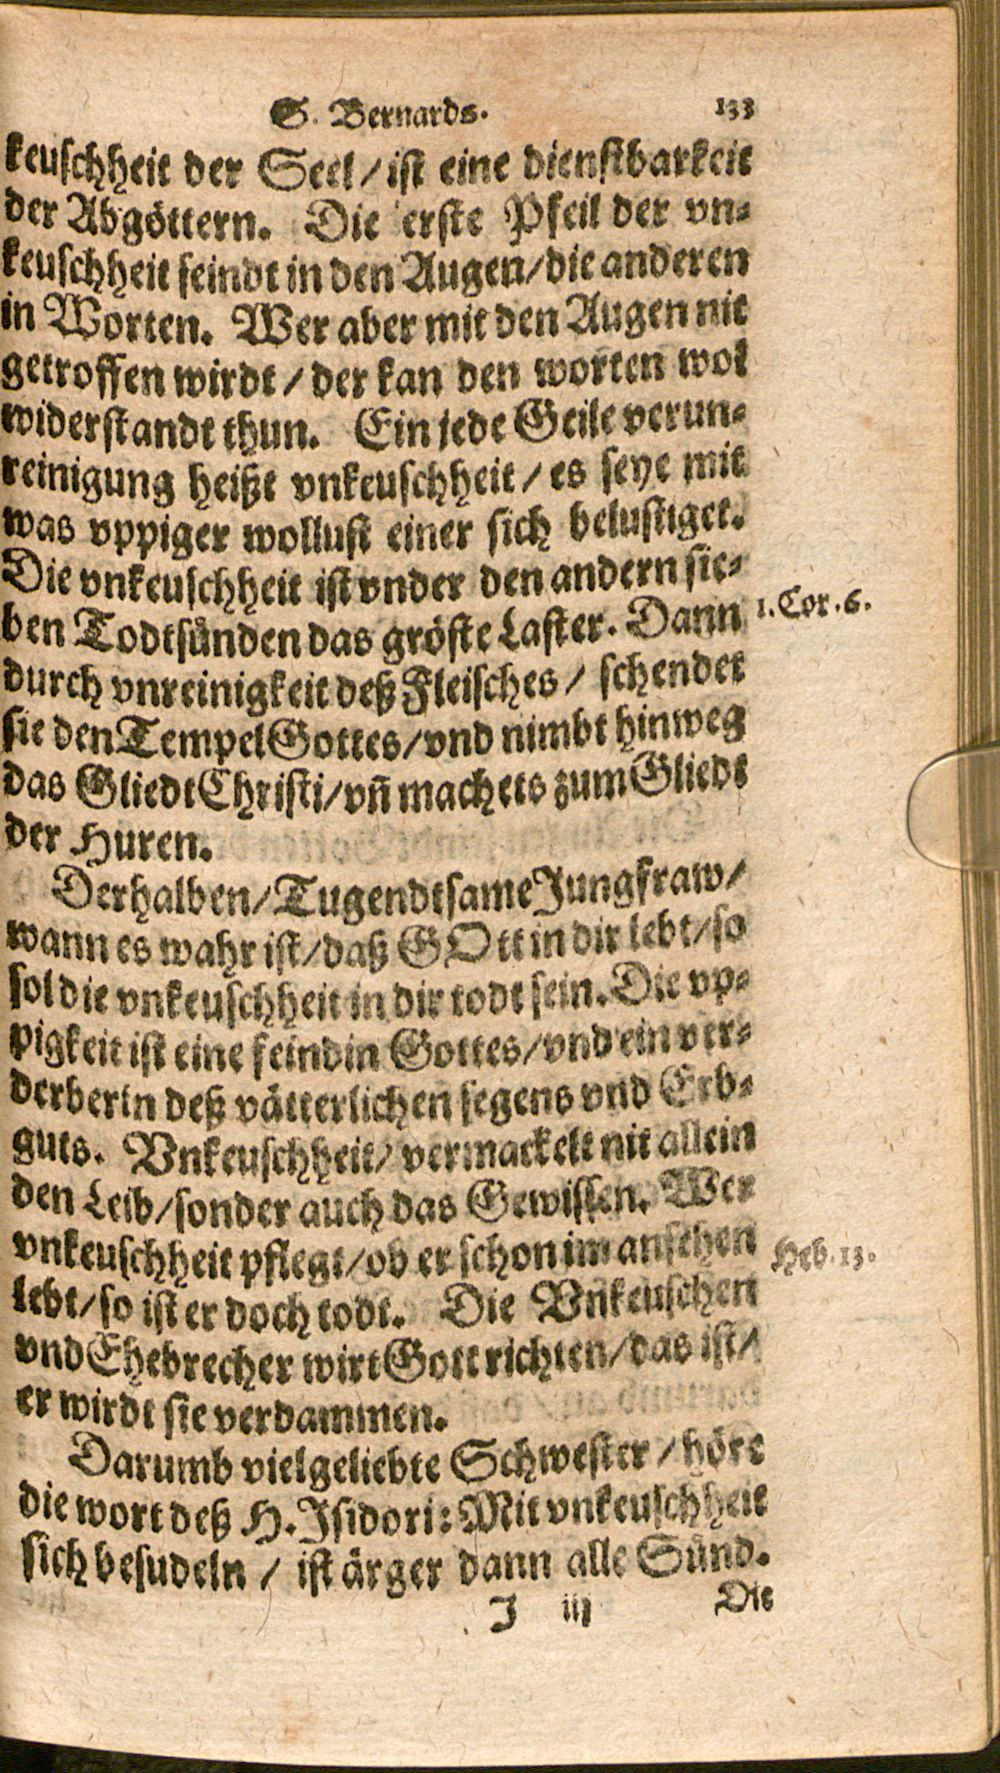 S. Bernards. 133
keuschheit der Seel / ist eine dienstbarkeit
der Abgöttern. Die erste Pfeil der vn-
keuschheit seindt in den Augen / die anderen
in Worten. Wer aber mit den Augen nit
getroffen wirdt / der kan den worten wol
widerstandt thun. Ein jede Geile verun-
reinigung heißt vnkeuschheit / es seye mit
was vppiger wollust einer sich belustiget.
Die vnkeuschheit ist vnder den andern sie-
ben Todtsünden das gröste Laster. Dann 1. Cor. 6.
durch vnreinigkeit deß Fleisches / schendet
sie den Tempel Gottes / vnd nimbt hinweg
das Gliedt Christi / vn̄ machets zum Gliedt
der Huren.
Derhalben / Tugendtsame Jungfraw /
wann es wahr ist / daß GOtt in dir lebt / so
sol die vnkeuschheit in dir todt sein. Die vp-
pigkeit ist eine feindin Gottes / vnd ein ver-
derberin deß vätterlichen segens vnd Erb-
guts. Vnkeuschheit / vermackelt nit allein
den Leib / sonder auch das Gewissen. Wer
vnkeuschheit pflegt / ob er schon im ansehen Heb. 13.
lebt / so ist er doch todt. Die Vnkeuschen
vnd Ehebrecher wirt Gott richten / das ist /
er wirdt sie verdammen.
Darumb vielgeliebte Schwester / höre
die wort deß H. Isidori: Mit vnkeuschheit
sich besudeln / ist ärger dann alle Sünd.
I iij Die